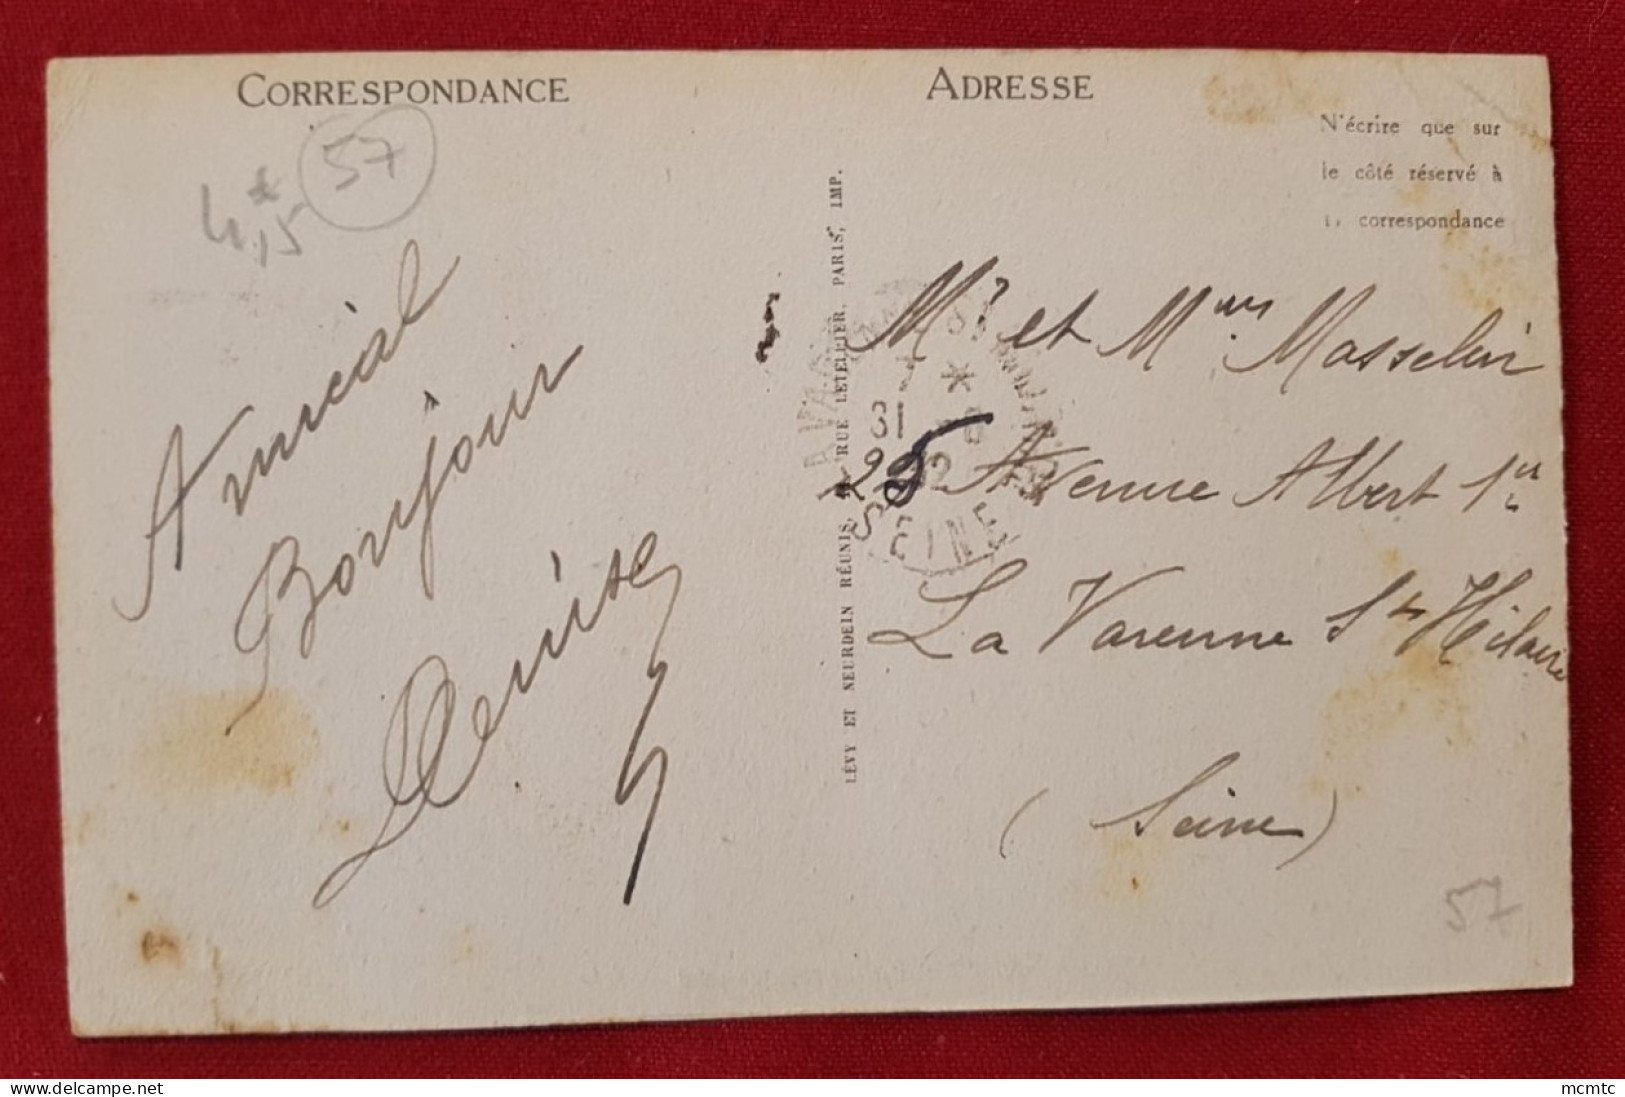 CORRESPONDANCE
57
4,5
Amical
Bonjour
Denise
LÉVY ET NEURDEIN RÉUNIS, RUE LETELLIER, PARIS, IMP.
ADRESSE
N'écrire que sur
le côté réservé à
correspondance
Mr et Mme Masselin
28 Avenue Albert 1er
La Varenne St Hilaire
(Seine)
SEINE
57
mcmtc